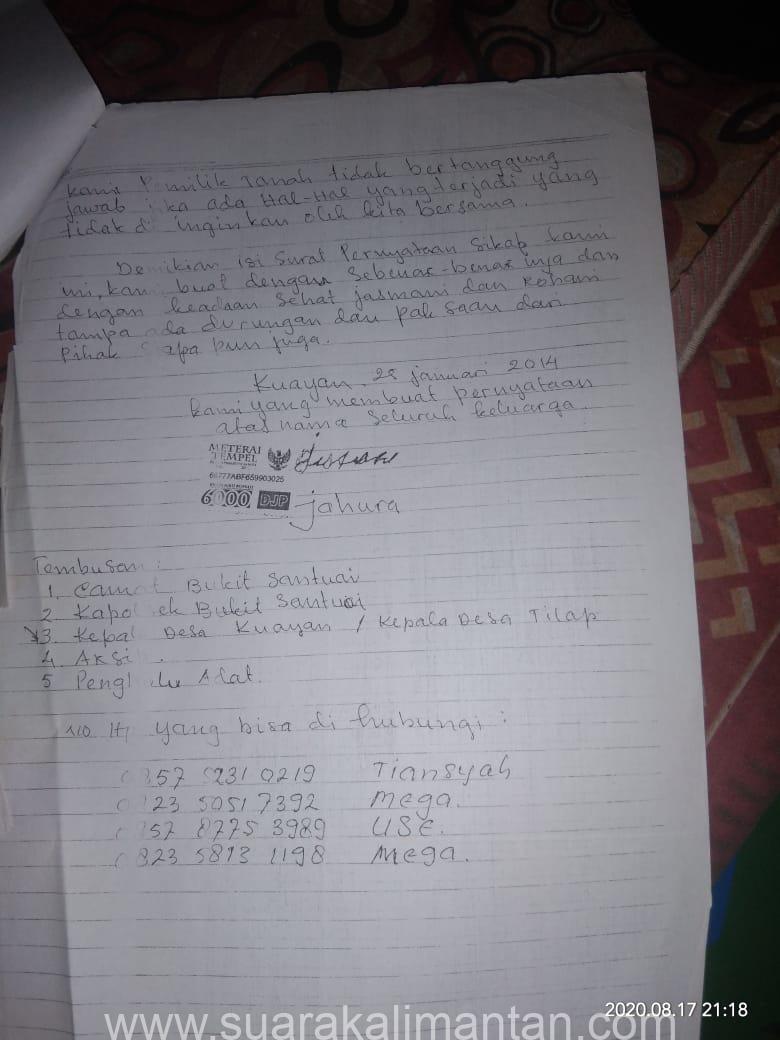 kami Pemilik Tanah tidak bertanggung
jawab jika ada Hal-Hal yang terjadi yang
tidak di inginkan oleh kita bersama.
Demikian isi Surat Pernyataan Sikap kami
ini, kami buat dengan sebenar-benar inya dan
dengan keadaan sehat jasmani dan Rohani
tampa ada durungan dan pak saan dari
Pihak S apa pun juga.
Kuayan, 28 januari 2014
kami yang membuat pernyataan
atas nama seluruh keluarga.
METERAI
TEMPEL
777ABF659903025
6000 DJP
jahura
Tembusan :
1. Camat Bukit Santuai
2. Kapo ek Bukit Santuai
3. Kepal Desa Kuayan / Kepala Desa Tilap
4. Aksi
5 Pengl lu Adat.
No. H yang bisa di hubungi :
57 5231 0219 Tiansyah
23 5051 7392 Mega.
57 8775 3989 USE.
823 5813 1198 Mega.
2020.08.17 21:18
www.suarakalimantan.com